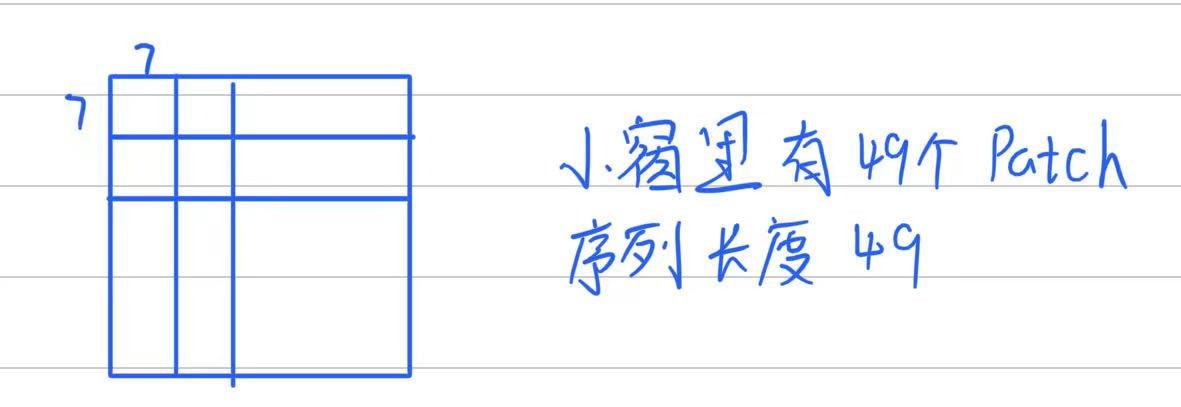 7
7
小窗里有49个Patch
序列长度49